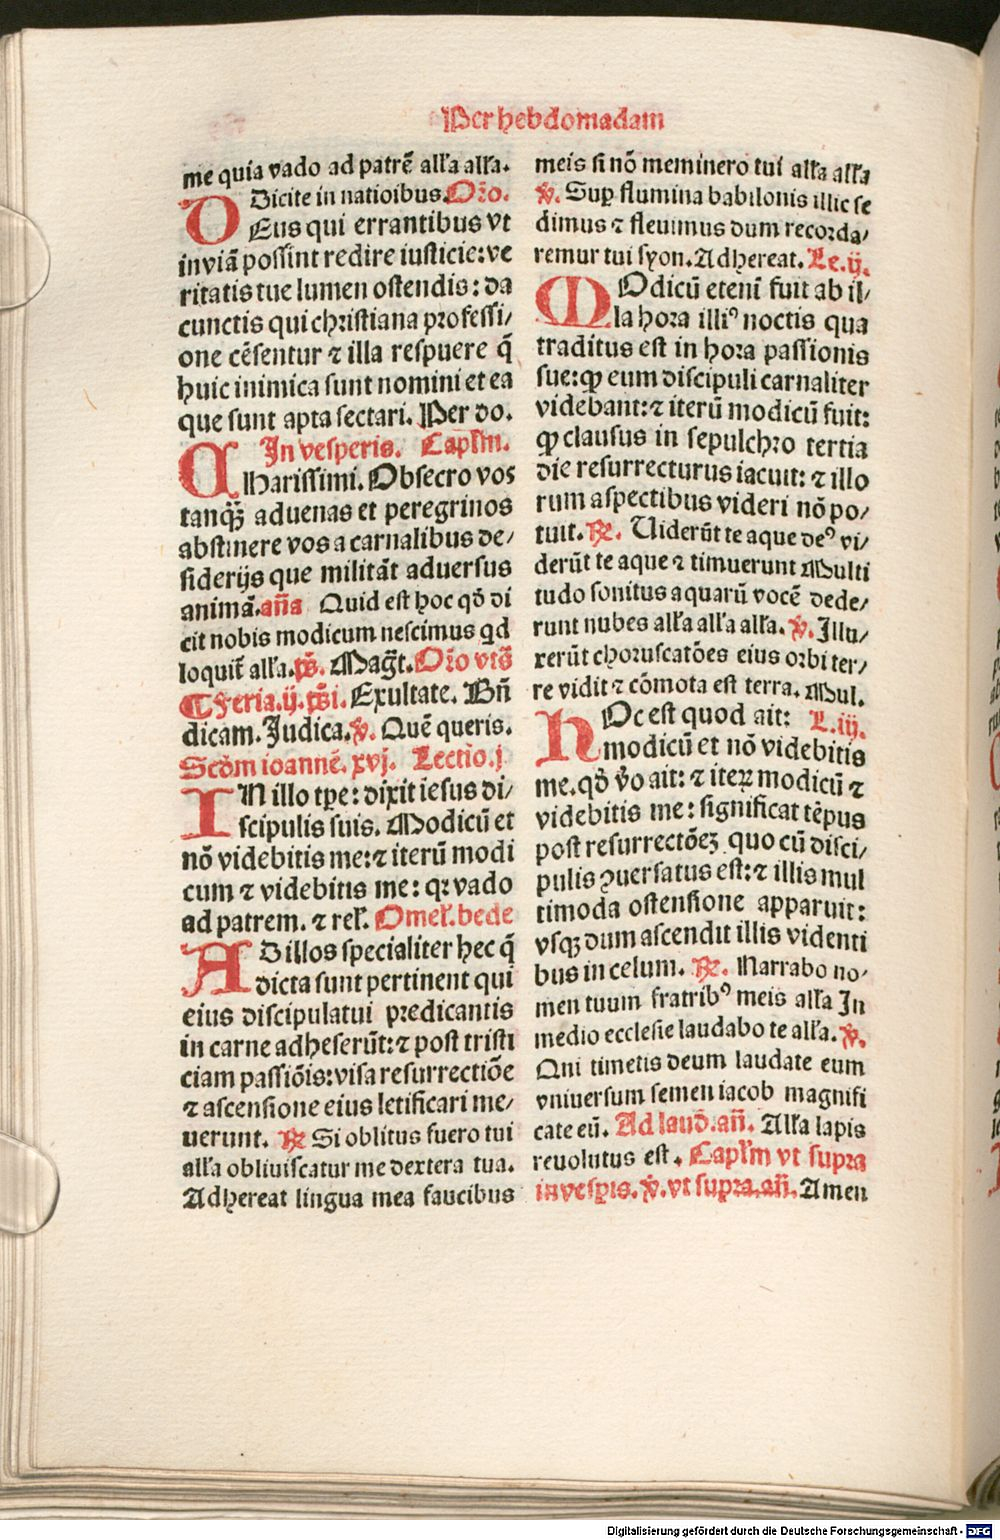 Per hebdomadam
me quia vado ad patrē allʼa allʼa.
Dicite in natioibus. Oŕo.
DEus qui errantibus vt
in viā possint redire iusticie: ve
ritatis tue lumen ostendis: da
cunctis qui christiana professi/
one cēsentur ⁊ illa respuere q̄
huic inimica sunt nomini et ea
que sunt apta sectari. Per do.
In vesperis. Caplʼm.
CHarissimi. Obsecro vos
tanqȝ̄ aduenas et peregrinos
abstinere vos a carnalibus de/
siderijs que militāt aduersus
animā. añа Quid est hoc qd̄ di
cit nobis modicum nescimus qd
loquit̄ allʼa. ps̄. Maḡt. Oŕo vts̄
¶ Feria. ij. ps̄i. Exultate. Bn̄
dicam. Judica. v̄. Quē queris.
Scd̄m ioannē. xvj. Lectio. j
IN illo tꝑe: dixit iesus di/
scipulis suis. Modicū et
nō videbitis me: ⁊ iterū modi
cum ⁊ videbitis me: qꝛ vado
ad patrem. ⁊ relʼ. Omelʼ. bede
AD illos specialiter hec q̄
dicta sunt pertinent qui
eius discipulatui predicantis
in carne adheserūt: ⁊ post tristi
ciam passiōis: visa resurrectiōe
⁊ ascensione eius letificari me/
uerunt. ℞ Si oblitus fuero tui
allʼa obliuiscatur me dextera tua.
Adhereat lingua mea faucibus
meis si nō meminero tui allʼa allʼa
v̄. Suꝑ flumina babilonis illic se
dimus ⁊ fleuimus dum recorda/
remur tui syon. Adhereat. Le. ij.
MOdicū etenī fuit ab il/
la hora illiꝰ noctis qua
traditus est in hora passionis
sue: ꝙ eum discipuli carnaliter
videbant: ⁊ iterū modicū fuit:
ꝙ clausus in sepulchro tertia
die resurrecturus iacuit: ⁊ illo
rum aspectibus videri nō po/
tuit. ℞. Uiderūt te aque deꝰ vi/
derūt te aque ⁊ timuerunt Multi
tudo sonitus aquarū vocē dede/
runt nubes allʼa allʼa allʼa. v̄. Illu/
xerūt choruscatōes eius orbi ter/
re vidit ⁊ cōmota est terra. Mul.
HOc est quod ait: L. iij.
modicū et nō videbitis
me. qd̄ v̄o ait: ⁊ iteꝝ modicū ⁊
videbitis me: significat tēpus
post resurrectōeȝ quo cū disci/
pulis ꝯuersatus est: ⁊ illis mul
timoda ostensione apparuit:
vsqȝ dum ascendit illis videnti
bus in celum. ℞. Narrabo no/
men tuum fratribꝰ meis allʼa In
medio ecclesie laudabo te allʼa. v̄.
Qui timetis deum laudate eum
vniuersum semen iacob magnifi
cate eū. Ad laud̄. añ. Allʼa lapis
reuolutus est. Caplʼm vt supra
in vesꝑis. v̄. vt supra. añ. Amen
Digitalisierung gefördert durch die Deutsche Forschungsgemeinschaft - DFG